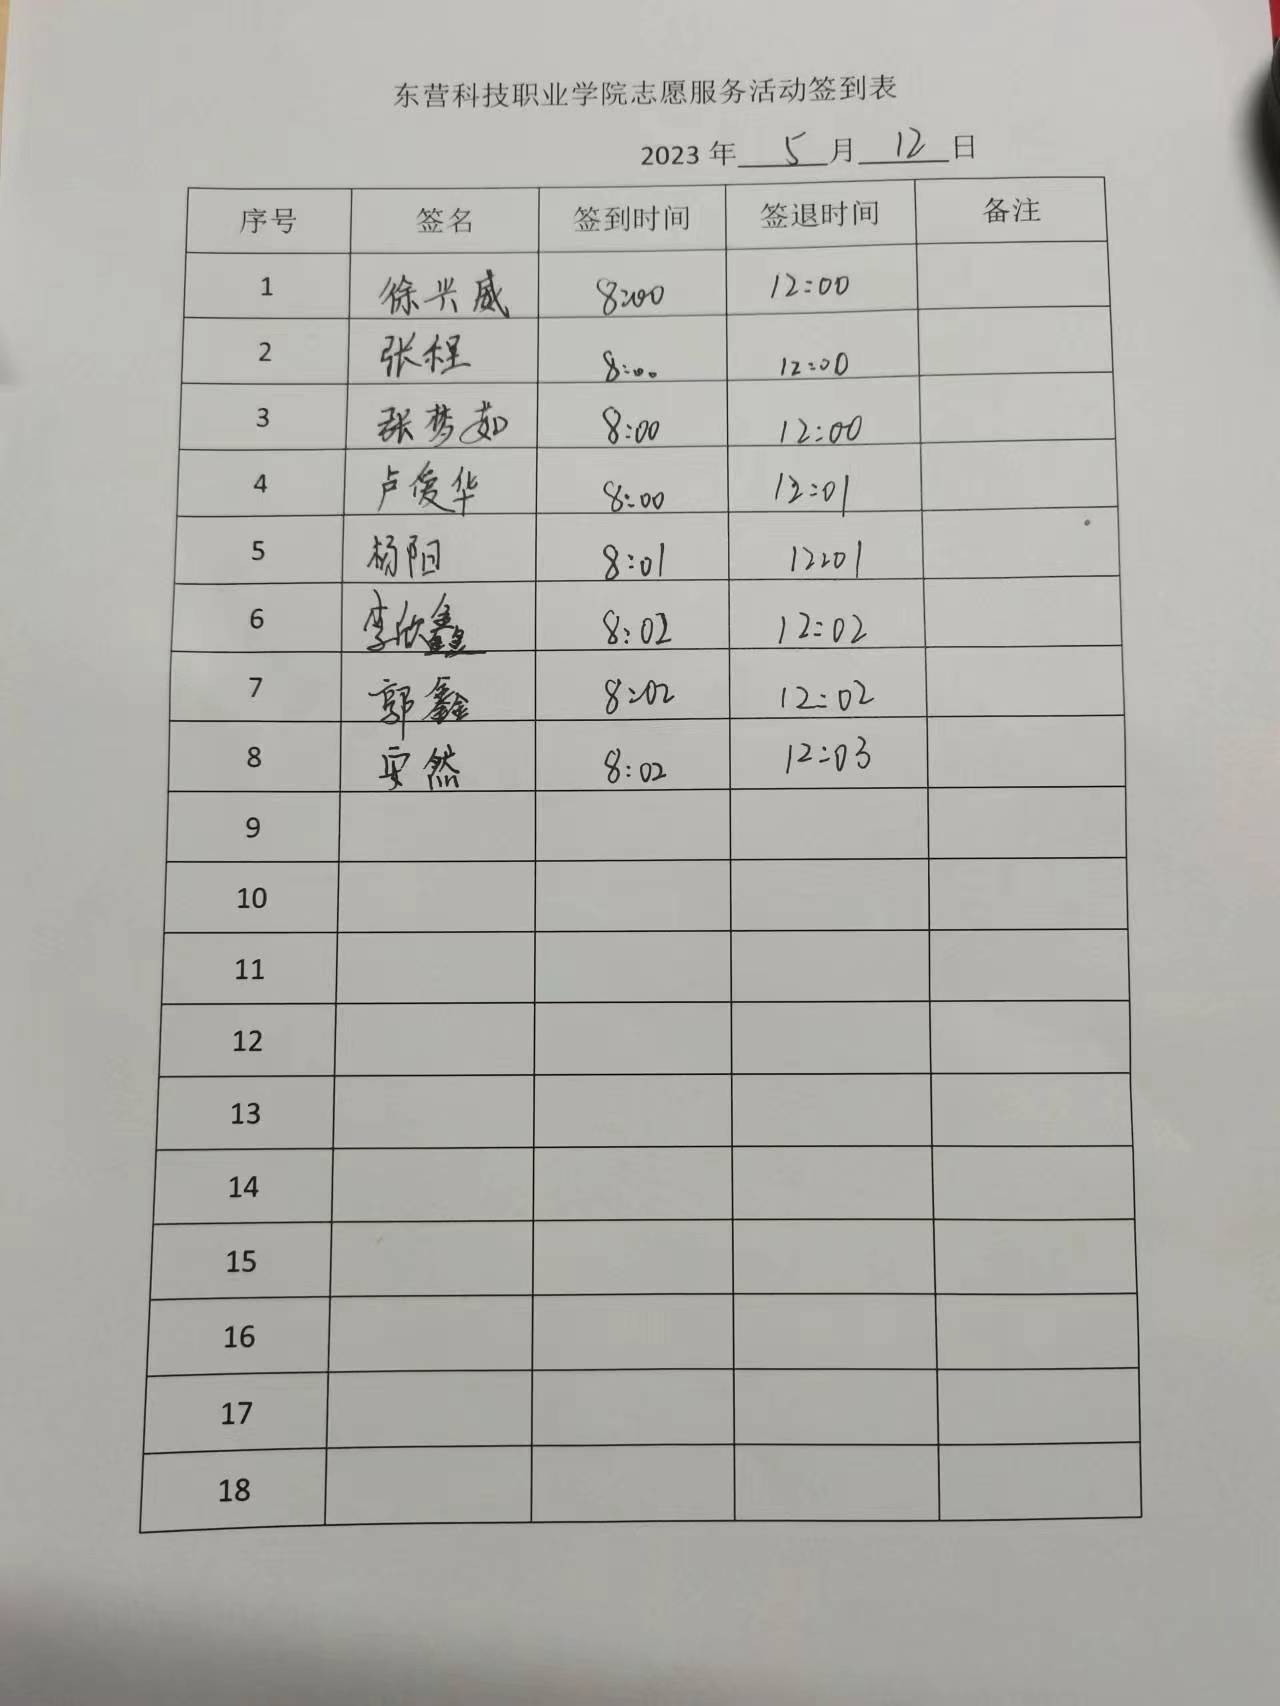 东营科技职业学院志愿服务活动签到表
2023 年 5 月 12 日
序号 签名 签到时间 签退时间 备注
1 徐兴威 8:00 12:00
2 张程 8:00 12:00
3 张梦茹 8:00 12:00
4 卢俊华 8:00 12:01
5 杨阳 8:01 12:01
6 李欣鑫 8:02 12:02
7 郭鑫 8:02 12:02
8 安然 8:02 12:03
9
10
11
12
13
14
15
16
17
18